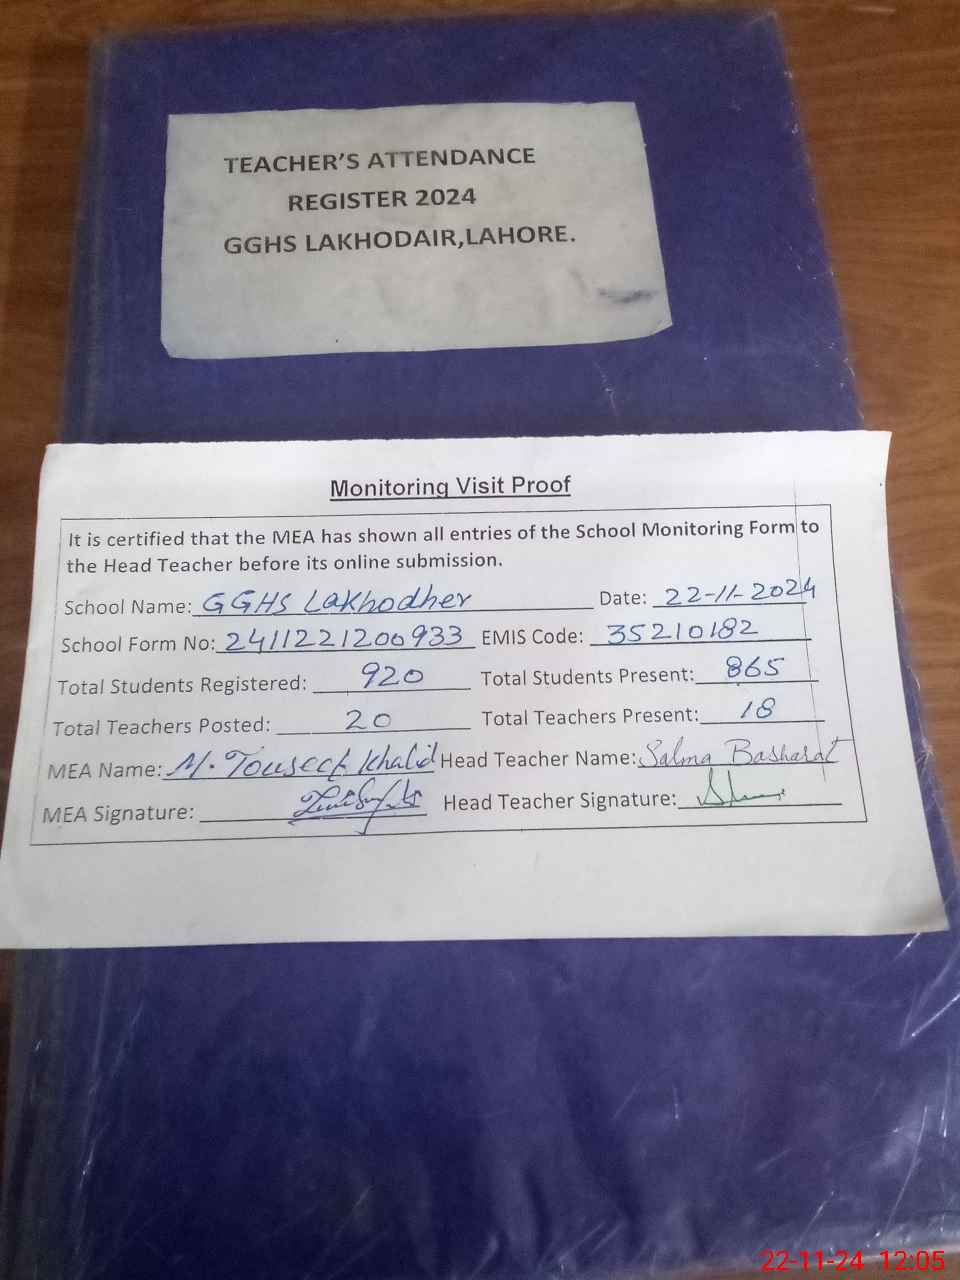 TEACHER'S ATTENDANCE
REGISTER 2024
GGHS LAKHODAIR,LAHORE.
Monitoring Visit Proof
It is certified that the MEA has shown all entries of the School Monitoring Form to
the Head Teacher before its online submission.
School Name: GGHS Lakhodher Date: 22-11-2024
School Form No: 2411221200933 EMIS Code: 35210182
Total Students Registered: 920 Total Students Present: 865
Total Teachers Posted: 20 Total Teachers Present: 18
MEA Name: M. Touseef Khalid Head Teacher Name: Salma Basharat
MEA Signature: Head Teacher Signature:
22-11-24 12:05